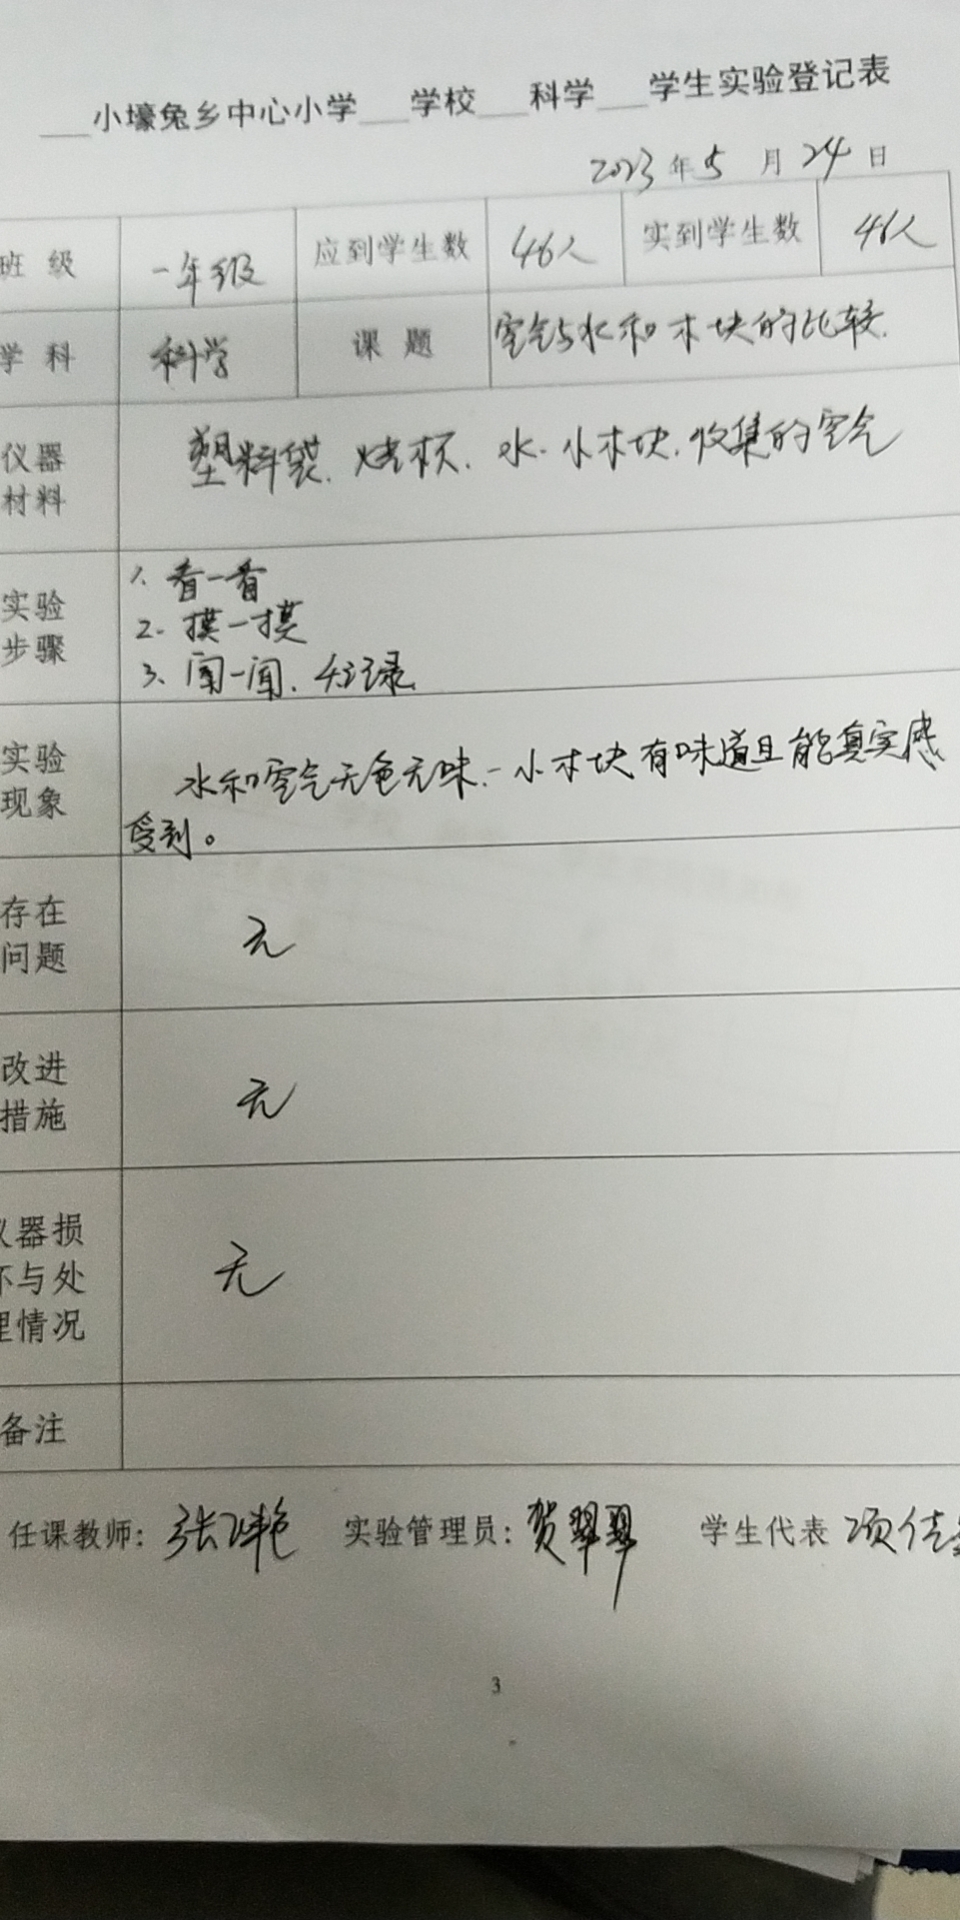 ___小壕兔乡中心小学___学校___科学___学生实验登记表
2023 年 5 月 24 日
班 级 一年级 应到学生数 46人 实到学生数 46人
学 科 科学 课 题 空气与水和木块的比较.
仪器
材料
塑料袋、烧杯、水、小木块、收集的空气
实验
步骤
1、看一看
2、摸一摸
3、闻一闻、记录
实验
现象
水和空气无色无味、小木块有味道且能真实感
受到。
存在
问题
无
改进
措施
无
仪器损
坏与处
理情况
无
备注
任课教师: 张 艳 实验管理员: 贺翠翠 学生代表 项佳
3